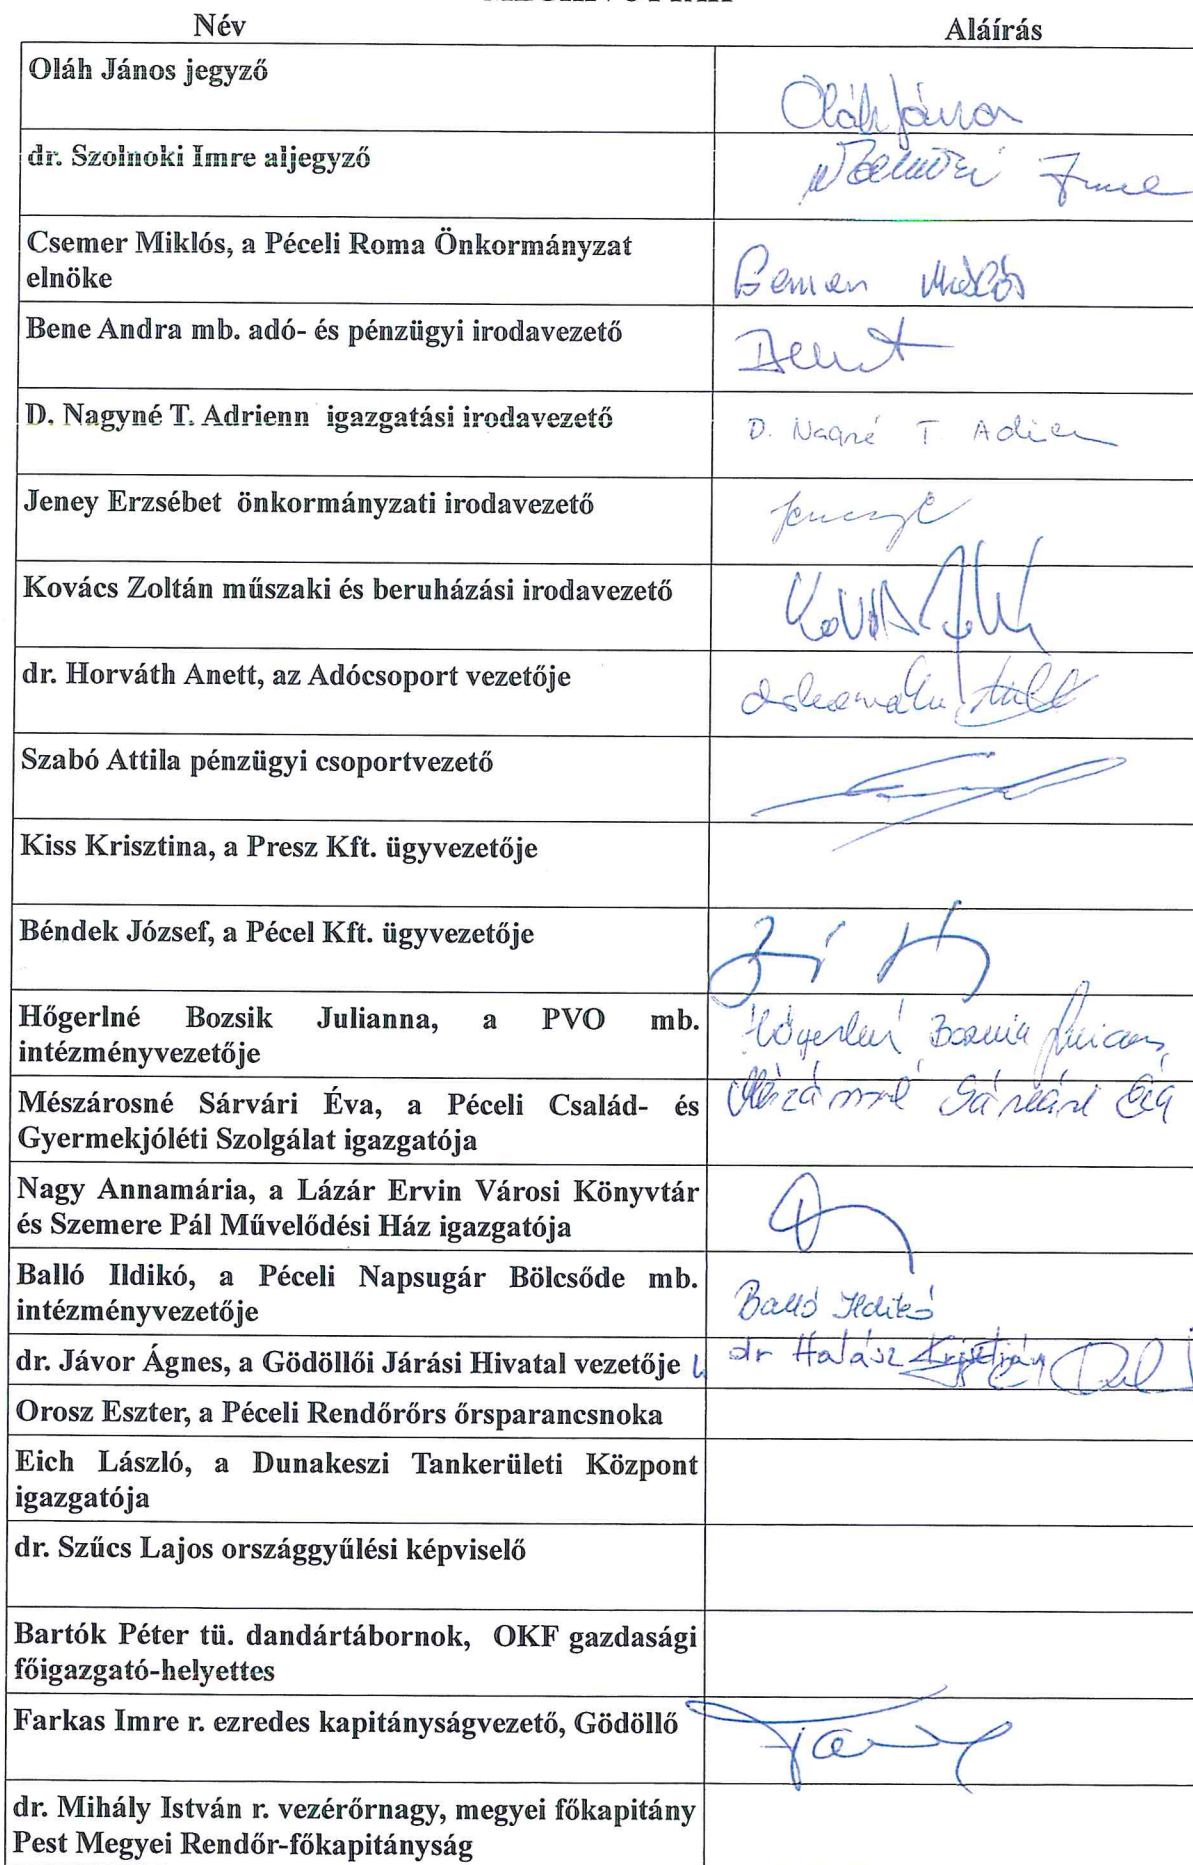 Név Aláírás
Oláh János jegyző
Oláh János
dr. Szolnoki Imre aljegyző
Imre
Csemer Miklós, a Péceli Roma Önkormányzat
elnöke
Miklós
Bene Andra mb. adó- és pénzügyi irodavezető
D. Nagyné T. Adrienn igazgatási irodavezető
D. Nagyné T. Adrien
Jeney Erzsébet önkormányzati irodavezető
Kovács Zoltán műszaki és beruházási irodavezető
dr. Horváth Anett, az Adócsoport vezetője
Szabó Attila pénzügyi csoportvezető
Kiss Krisztina, a Presz Kft. ügyvezetője
Béndek József, a Pécel Kft. ügyvezetője
Hőgerlné Bozsik Julianna, a PVO mb.
intézményvezetője
Mészárosné Sárvári Éva, a Péceli Család- és
Gyermekjóléti Szolgálat igazgatója
Sárvári Éva
Nagy Annamária, a Lázár Ervin Városi Könyvtár
és Szemere Pál Művelődési Ház igazgatója
Balló Ildikó, a Péceli Napsugár Bölcsőde mb.
intézményvezetője
Balló Ildikó
dr. Jávor Ágnes, a Gödöllői Járási Hivatal vezetője
dr Halász Krisztián
Orosz Eszter, a Péceli Rendőrőrs őrsparancsnoka
Eich László, a Dunakeszi Tankerületi Központ
igazgatója
dr. Szűcs Lajos országgyűlési képviselő
Bartók Péter tü. dandártábornok, OKF gazdasági
főigazgató-helyettes
Farkas Imre r. ezredes kapitányságvezető, Gödöllő
dr. Mihály István r. vezérőrnagy, megyei főkapitány
Pest Megyei Rendőr-főkapitányság